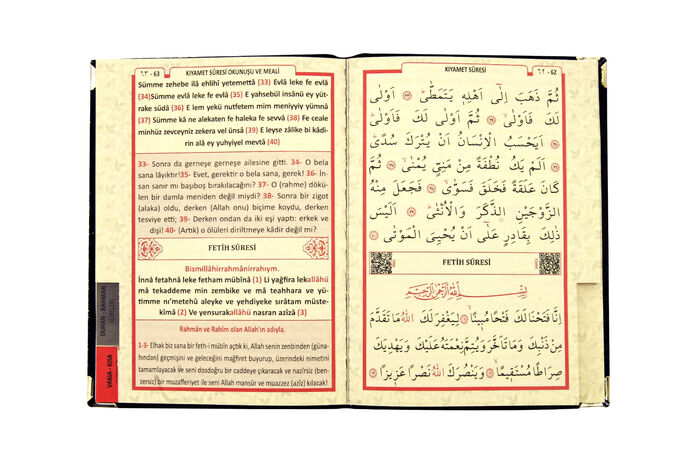 ٦٣ - 63
KIYAMET SÛRESİ OKUNUŞU VE MEALİ
Sümme zehebe ilâ ehlihî yetemettâ (33) Evlâ leke fe evlâ
(34)Sümme evlâ leke fe evlâ (35) E yahsebül insânü ey yüt-
rake südâ (36) E lem yekü nutfetem mim meniyyiy yümnâ
(37) Sümme kâ ne alekaten fe haleka fe sevvâ (38) Fe ceale
minhüz zevceyniz zekera vel ünsâ (39) E leyse zâlike bi kâdi-
rin alâ ey yuhyiyel mevtâ (40)
33- Sonra da gerneşe gerneşe ailesine gitti. 34- O bela
sana lâyıktır!35- Evet, gerektir o bela sana, gerek! 36- İn-
san sanır mı başıboş bırakılacağını? 37- O (rahme) dökü-
len bir damla meniden değil miydi? 38- Sonra bir zigot
(alaka) oldu, derken (Allah onu) biçime koydu, derken
tesviye etti; 39- Derken ondan da iki eşi yaptı: erkek ve
dişi! 40- (Artık) o ölüleri diriltmeye kâdir değil mi?
FETİH SÛRESİ
Bismillâhirrahmânirrahıym.
İnnâ fetahnâ leke fetham mübînâ (1) Li yağfira lekallâhü
mâ tekaddeme min zembike ve mâ teahhara ve yü-
timme nı'metehû aleyke ve yehdiyeke sırâtam müste-
kîmâ (2) Ve yensurakallâhü nasran azîzâ (3)
Rahmân ve Rahîm olan Allah'ın adıyla.
1-3- Elhak biz sana bir feth-i mübîn açtık ki, Allah senin zenbinden (güna-
hından) geçmişini ve geleceğini mağfiret buyurup, üzerindeki nimetini
tamamlayacak ve seni dosdoğru bir caddeye çıkaracak ve nazîrsiz (ben-
zersiz) bir muzafferiyet ile seni Allah mansûr ve muazzez (azîz) kılacak!
DUHAN - RAHMAN
VAKIA - KISA
KIYAMET SÛRESİ
٦٢ - 62
ثُمَّ ذَهَبَ اِلٰٓى اَهْلِه۪ يَتَمَطّٰىۜ ﴿٣٣﴾ اَوْلٰى
لَكَ فَاَوْلٰىۙ ﴿٣٤﴾ ثُمَّ اَوْلٰى لَكَ فَاَوْلٰىۜ
﴿٣٥﴾ اَيَحْسَبُ الْاِنْسَانُ اَنْ يُتْرَكَ سُدًىۜ
﴿٣٦﴾ اَلَمْ يَكُ نُطْفَةً مِنْ مَنِيٍّ يُمْنٰىۙ ﴿٣٧﴾ ثُمَّ
كَانَ عَلَقَةً فَخَلَقَ فَسَوّٰىۙ ﴿٣٨﴾ فَجَعَلَ مِنْهُ
الزَّوْجَيْنِ الذَّكَرَ وَالْاُنْثٰىۜ ﴿٣٩﴾ اَلَيْسَ
ذٰلِكَ بِقَادِرٍ عَلٰٓى اَنْ يُحْيِيَ الْمَوْتٰى ﴿٤٠﴾
FETİH SÛRESİ
بِسْمِ اللّٰهِ الرَّحْمٰنِ الرَّح۪يمِ
اِنَّا فَتَحْنَا لَكَ فَتْحًا مُب۪ينًاۙ ﴿١﴾ لِيَغْفِرَ لَكَ اللّٰهُ مَا تَقَدَّمَ
مِنْ ذَنْبِكَ وَمَا تَاَخَّرَ وَيُتِمَّ نِعْمَتَهُ عَلَيْكَ وَيَهْدِيَكَ
صِرَاطًا مُسْتَق۪يمًاۙ ﴿٢﴾ وَيَنْصُرَكَ اللّٰهُ نَصْرًا عَز۪يزًا ﴿٣﴾